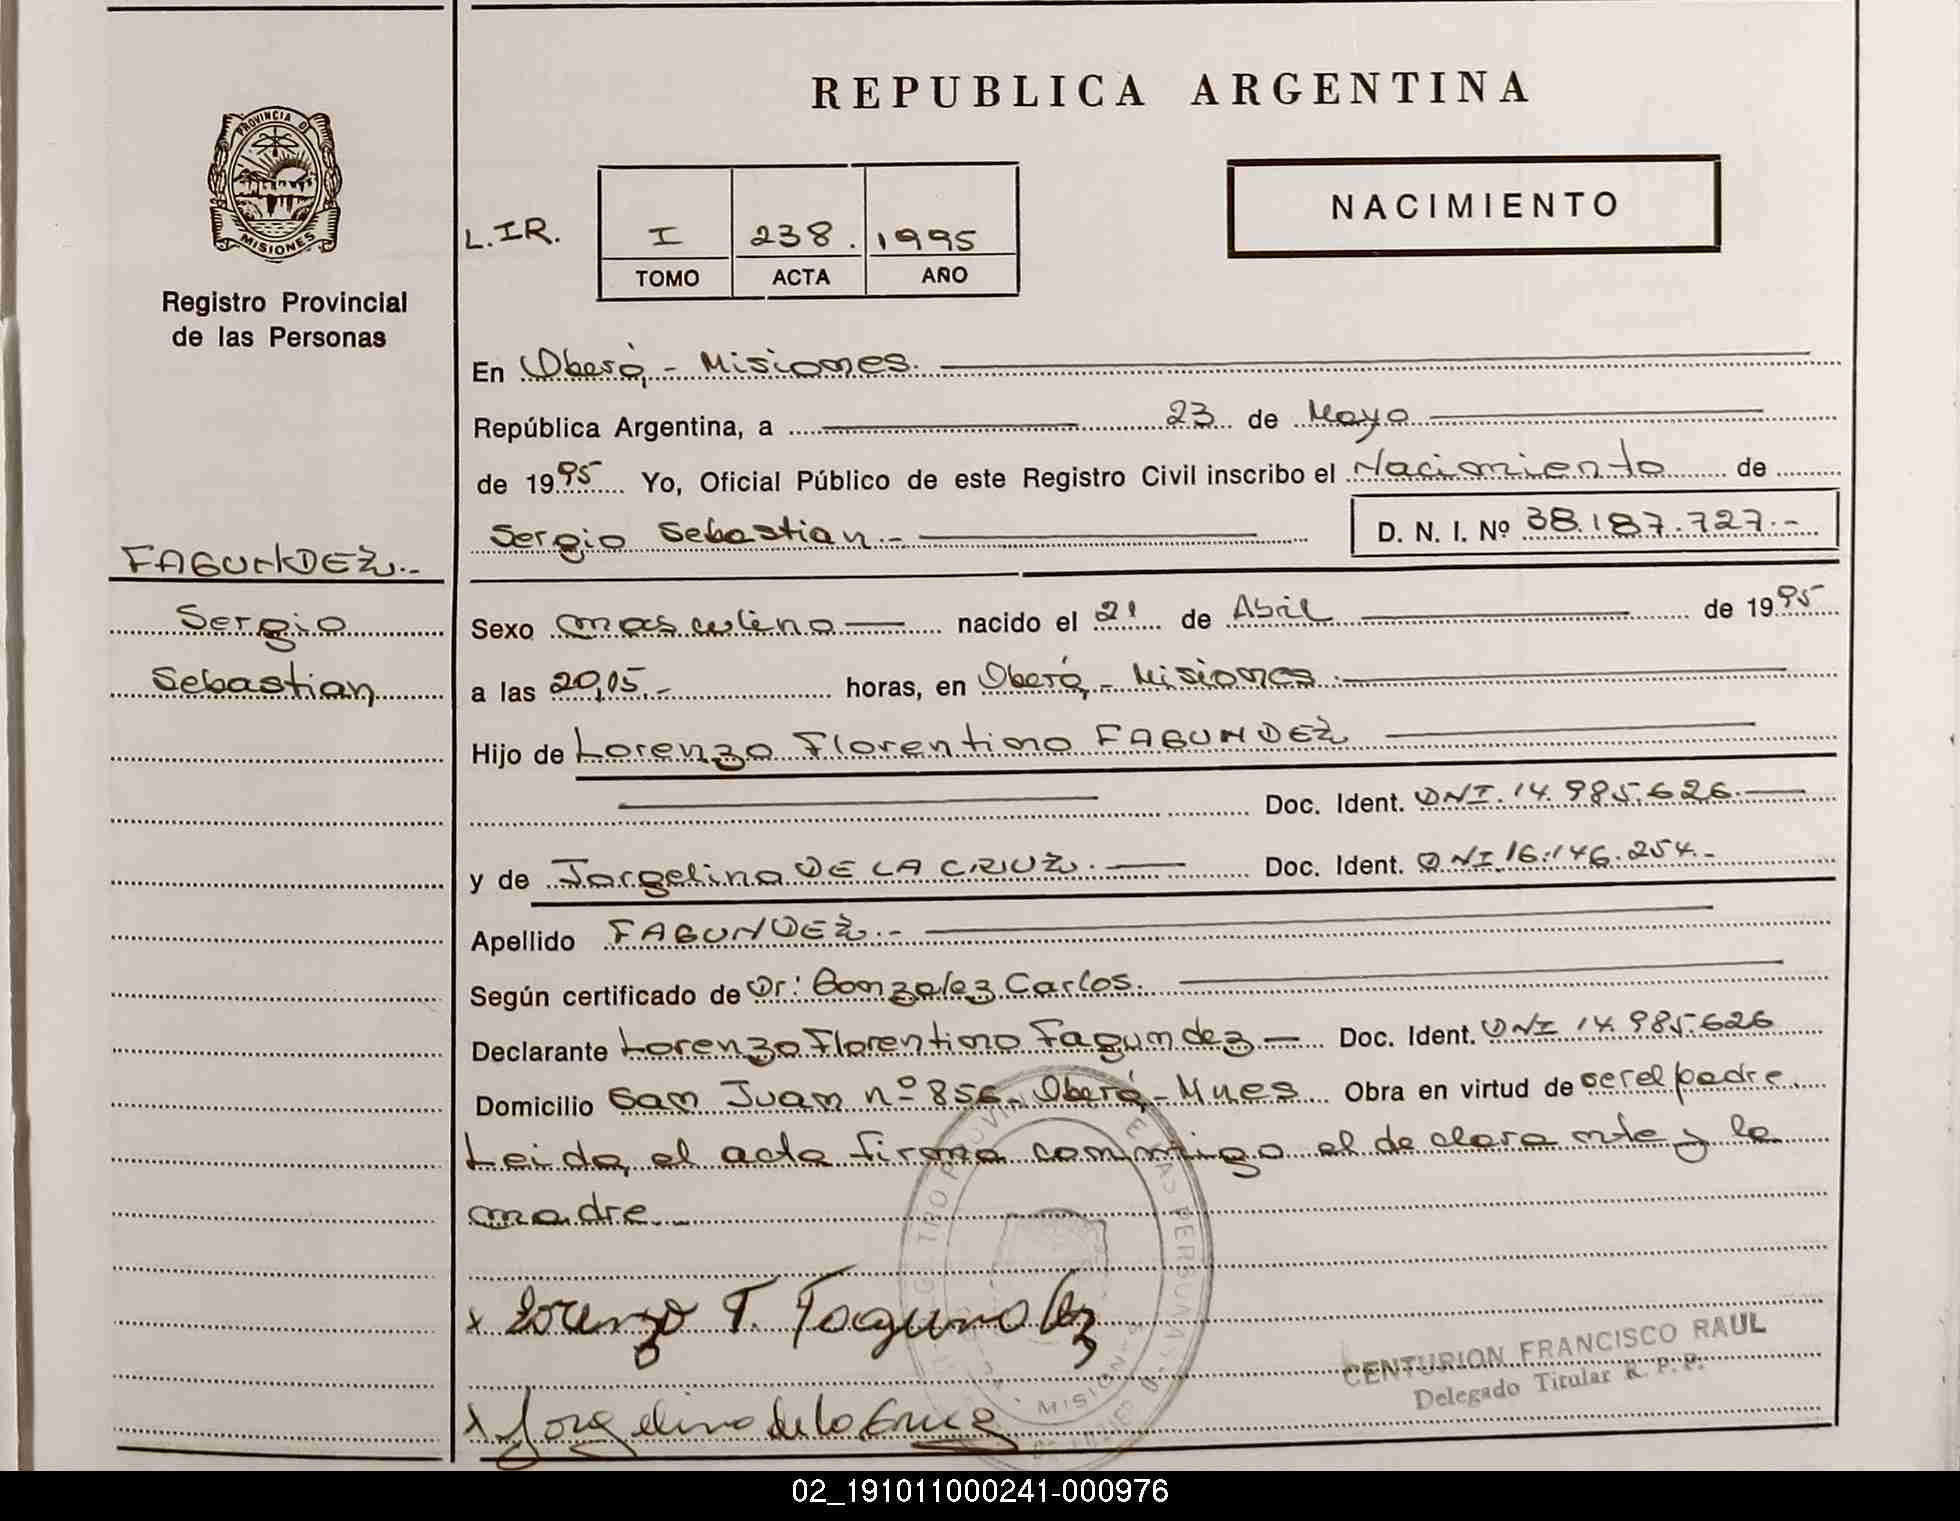 REPUBLICA ARGENTINA
PROVINCIA DE
MISIONES
Registro Provincial
de las Personas
NACIMIENTO
L.IR. I 238. 1995
TOMO ACTA AÑO
En Oberá - Misiones.
República Argentina, a 23 de Mayo
de 1995 Yo, Oficial Público de este Registro Civil inscribo el Nacimiento de
Sergio Sebastian.- D. N. I. Nº 38.187.727.-
FAGUNDEZ.-
Sergio
Sebastian
Sexo masculino nacido el 21 de Abril de 1995
a las 20,05.- horas, en Oberá - Misiones.
Hijo de Lorenzo Florentino FAGUNDEZ
Doc. Ident. DNI. 14.985.626.
y de Jorgelina DE LA CRUZ. Doc. Ident. DNI. 16.146.254.-
Apellido FAGUNDEZ.-
Según certificado de Dr: Gonzalez Carlos.
Declarante Lorenzo Florentino Fagundez Doc. Ident. DNI 14.985.626
Domicilio San Juan nº 856 - Oberá - Mnes Obra en virtud de ser el padre.
Leida el acta firma conmigo el declarante y la
madre.-
x Lorenzo F. Fagundez
CENTURION FRANCISCO RAUL
Delegado Titular R. P. P.
x Jorgelina de la Cruz
MISIONES
02_191011000241-000976